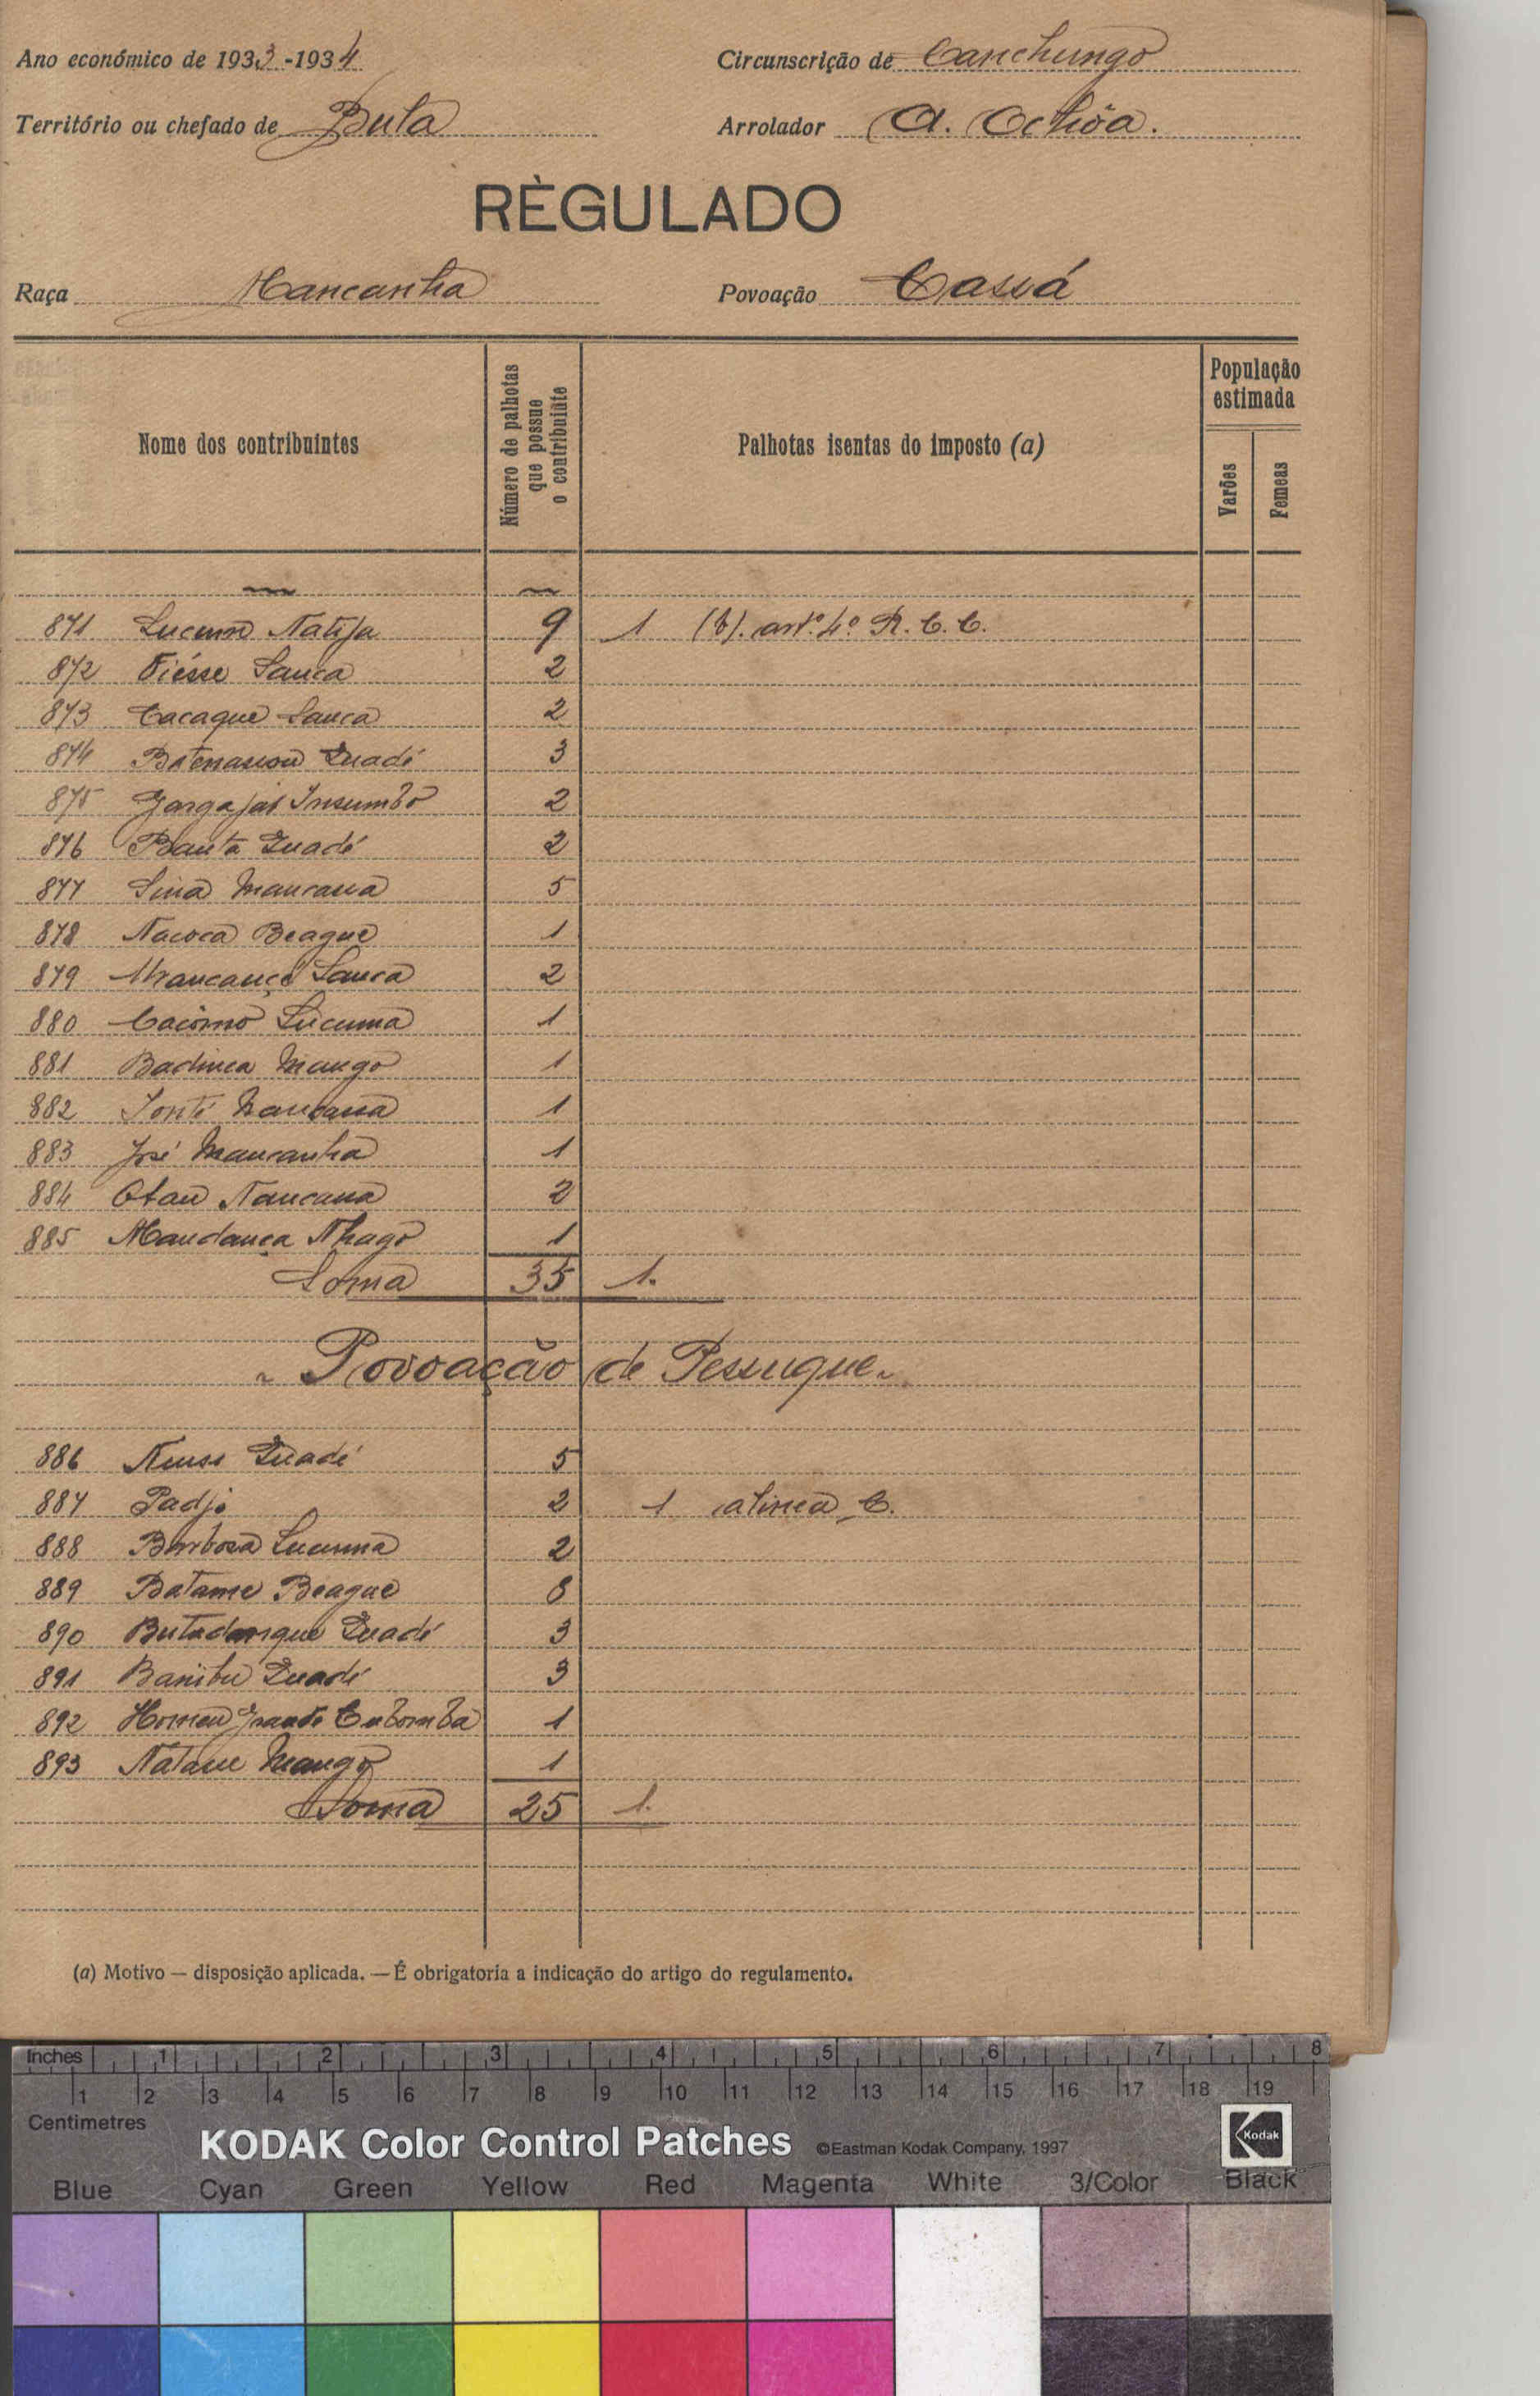 Ano económico de 1933-1934
Circunscrição de Canchungo
Território ou chefado de Bula
Arrolador A. Ochôa.
RÈGULADO
Raça Mancanha
Povoação Cassá
Nome dos contribuintes
Número de palhotas que possue o contribuinte
Palhotas isentas do imposto (a)
População estimada
Varões
Femeas
871 Lucumo Natija 9 1 (b). artº. 4º R. C. C.
872 Fiésse Sanca 2
873 Cacaque Sanca 2
874 Quadé 3
875 Insumbo 2
876 Banta Quadé 2
877 Sina Mancassa 5
878 Nacoca Beague 1
879 Mancança Sanca 2
880 Caiomo Lucuma 1
881 Badinca Mango 1
882 Tonté Mancassa 1
883 José Mancanha 1
884 Otau Nancassa 2
885 Mandança Nhago 1
Soma 35 1.
Povoação de Pessuque
886 Quadé 5
887 Padji 2 1 alinea C.
888 Barbosa Lucuma 2
889 Batame Beague 8
890 Butadangue Quadé 3
891 Banibu Quadé 3
892 Homem Grande Cubomba 1
893 Natasse Mango 1
Soma 25 1.
(a) Motivo — disposição aplicada. — É obrigatoria a indicação do artigo do regulamento.
Inches 1 2 3 4 5 6 7 8
1 2 3 4 5 6 7 8 9 10 11 12 13 14 15 16 17 18 19
Centimetres
KODAK Color Control Patches ©Eastman Kodak Company, 1997 Kodak
Blue Cyan Green Yellow Red Magenta White 3/Color Black